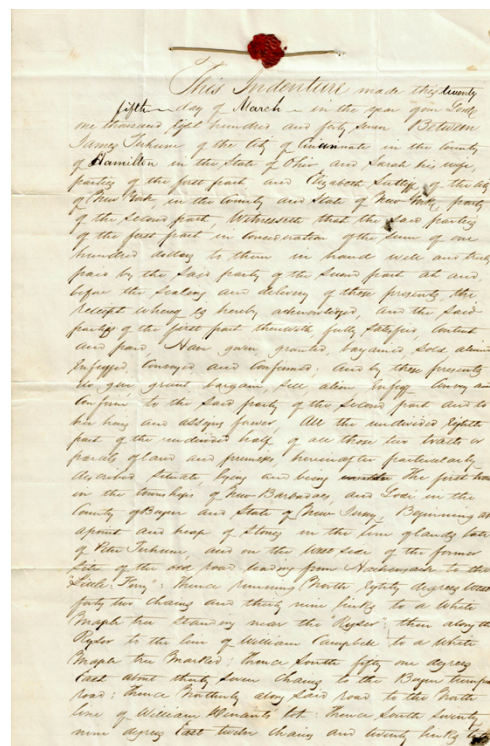 This Indenture made this twenty
fifth day of March in the year of our Lord
one thousand Eight hundred and forty seven Between
James Terhune of the City of Cincinnati in the County
of Hamilton in the State of Ohio and Sarah his wife,
parties of the first part and Elizabeth of the City
of New York, in the County and State of New York, party
of the second part, Witnesseth that the said parties
of the first part, in Consideration of the sum of one
hundred dollars to them in hand well and truly
paid by the said party of the Second part at and
before the sealing and delivery of these presents, the
receipt whereof is hereby acknowledged, and the said
parties of the first part therewith fully satisfied, content
and paid, Have given, granted, bargained, sold, aliened
Enfeoffed, Conveyed and Confirmed, and by these presents
do give grant bargain sell alien Enfeoff Convey and
Confirm to the said party of the Second part and to
her heirs and assigns forever, All the undivided Eighth
part of the undivided half of all those two tracts or
parcels of land and premises, hereinafter particularly
described Situate, lying and being The first
in the townships of New Barbadoes, and Lodi in the
County of Bergen and State of New Jersey Beginning at
a point and heap of Stones in the line of lands late
of Peter Terhune, and on the West side of the former
site of the old road leading from Hackensack to the
"Little Ferry"; Thence running North Eighty degrees West
forty two chains and thirty nine links to a White
Maple tree standing near the "Ryser"; then along the
Ryser to the line of William Campbell to a White
Maple tree Marked; Thence South fifty one degrees
East about thirty seven Chains to the Bergen turnpike
road; thence Northerly along said road to the North
line of William Winants lot; Thence South Seventy
nine degrees East twelve chains and twenty links to